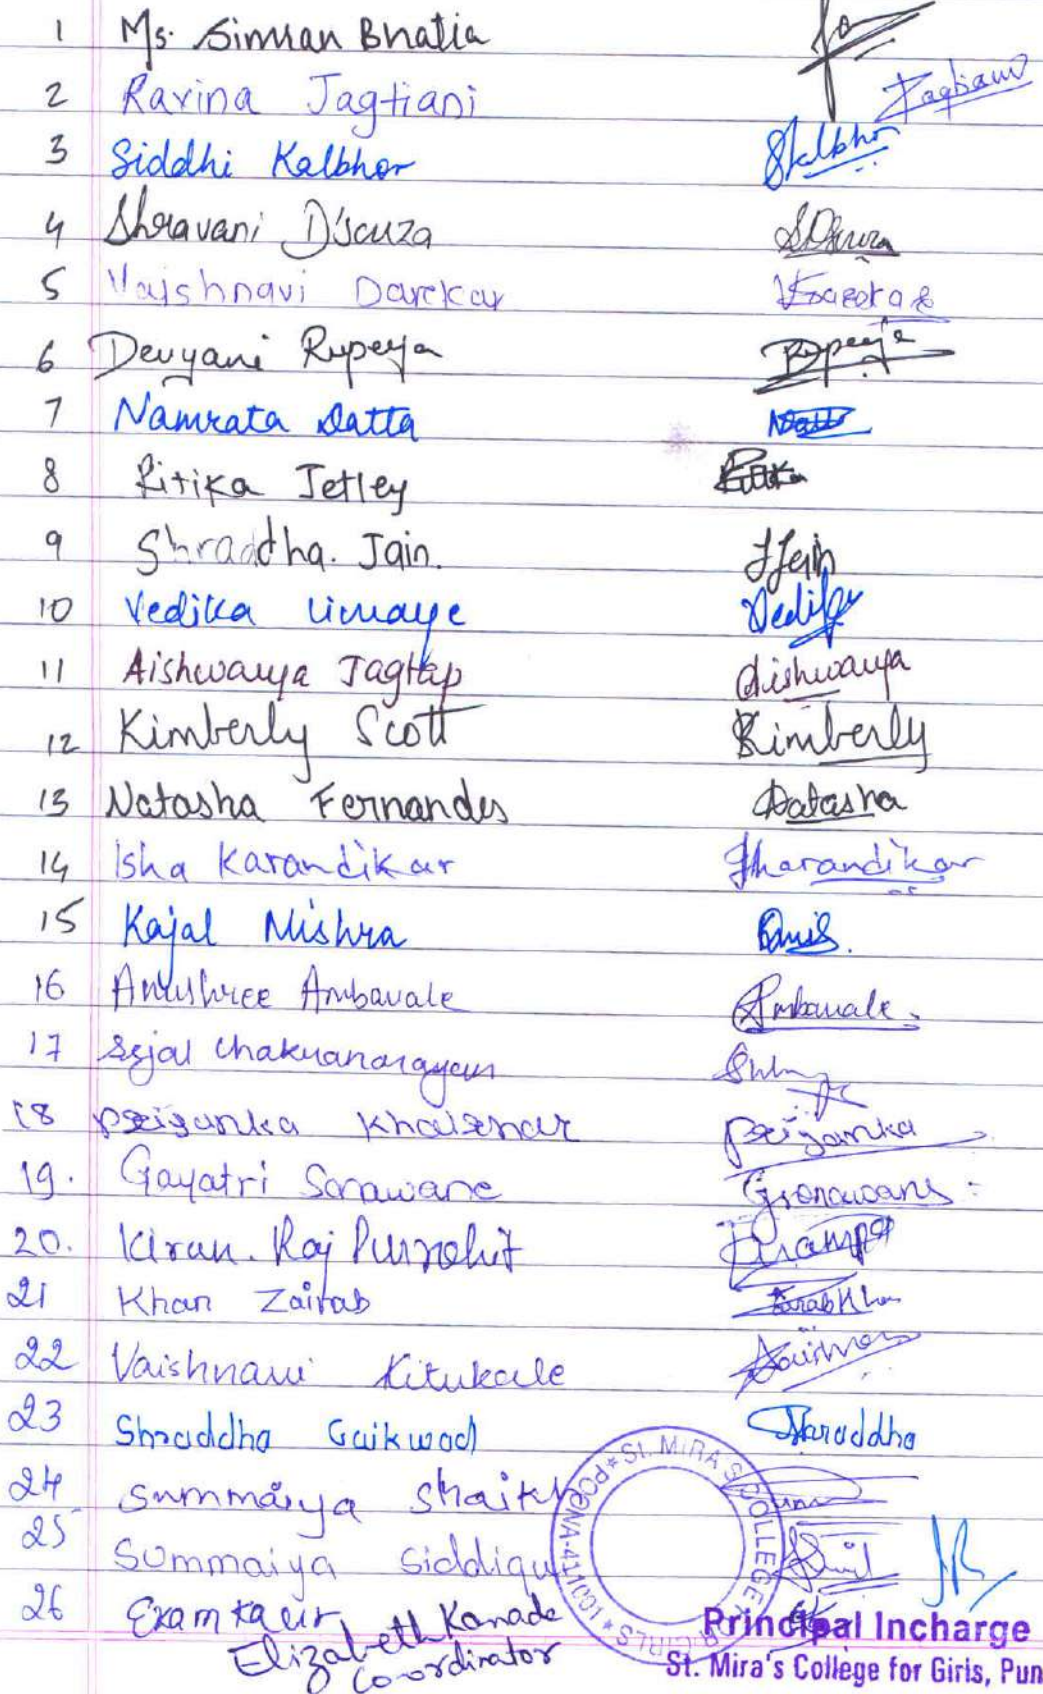 1 Ms. Simran Bhatia
2 Ravina Jagtiani Jagtiani
3 Siddhi Kalbhor SKalbhor
4 Shravani D'souza SDsouza
5 Vaishnavi Darekar
6 Devyani Rupeeja Rupeeja
7 Namrata Datta
8 Ritika Jetley Ritika
9 Shraddha. Jain. SJain
10 Vedika Limaye Vedika
11 Aishwarya Jagtap Aishwarya
12 Kimberly Scott Kimberly
13 Natasha Fernandes Natasha
14 Isha Karandikar IKarandikar
15 Kajal Mishra
16 Anushree Ambavale Ambavale
17 Sejal Chakranarayan
18 Priyanka Khairnar Priyanka
19. Gayatri Sonawane GSonawane
20. Kiran. Raj Purohit
21 Khan Zainab
22 Vaishnavi Kitukale
23 Shraddha Gaikwad Shraddha
24 Summaiya Shaikh
25 Sommaiya Siddiqui
26 Exam Kaur
Elizabeth Kanade
Co-ordinator
ST. MIRA'S COLLEGE FOR GIRLS * POONA-411001 *
Principal Incharge
St. Mira's College for Girls, Pun